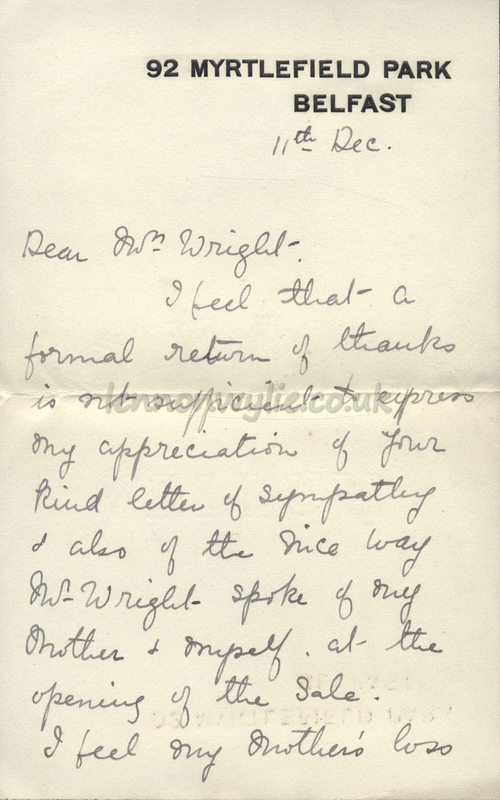 92 MYRTLEFIELD PARK
BELFAST
11th Dec.
Dear Mrs Wright.
I feel that a
formal return of thanks
is not sufficient to express
my appreciation of your
kind letter of sympathy
& also of the nice way
Mr Wright spoke of my
Mother & myself. at the
opening of the Sale.
I feel my Mother's loss